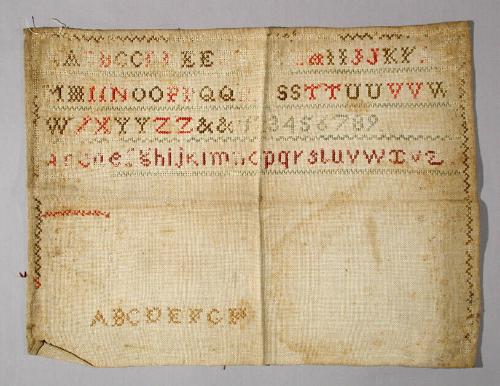 A B C C E E I I J J K K
M M N N O O P P Q Q S S T T U U V V W
W X X Y Y Z Z & & 1 2 3 4 5 6 7 8 9
a b c d e f g h i j k l m n o p q r s t u v w x y z
A B C D E F G H